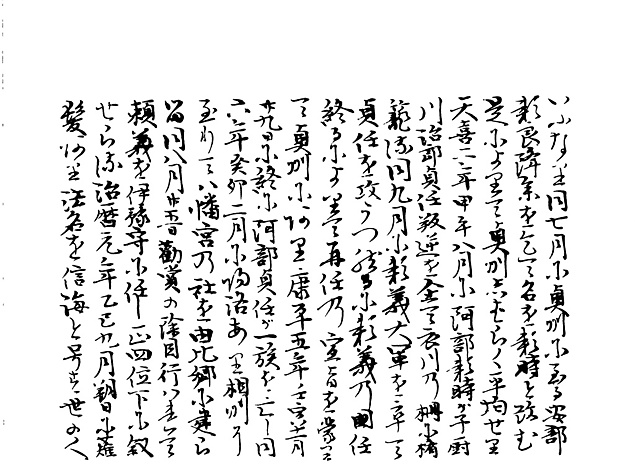 いふなり同七月に奥州に至る安部
頼良降参を乞て名を頼時と改む
是によりて奥州しはらく平均せり
天喜二年甲午八月に阿部頼時が子厨
川治郎貞任叛逆を企て衣川の柵に楯
籠流同九月に頼義大軍を率て
貞任を攻うつ然るに頼義の国任
終るによりて再任の宣旨を蒙て
て奥州に下り康平五年壬寅
廿九日に終に阿部貞任が一族を亡し同
六年癸卯二月に帰洛あり相州に
至りて八幡宮の社を由比郷に建ら
る同八月廿五日勧賞の除目行はれて
頼義を伊豫守に任し正四位下に叙
せら流治暦元年乙巳九月朔日に薙
髪ありて法名を信海と号す世の人